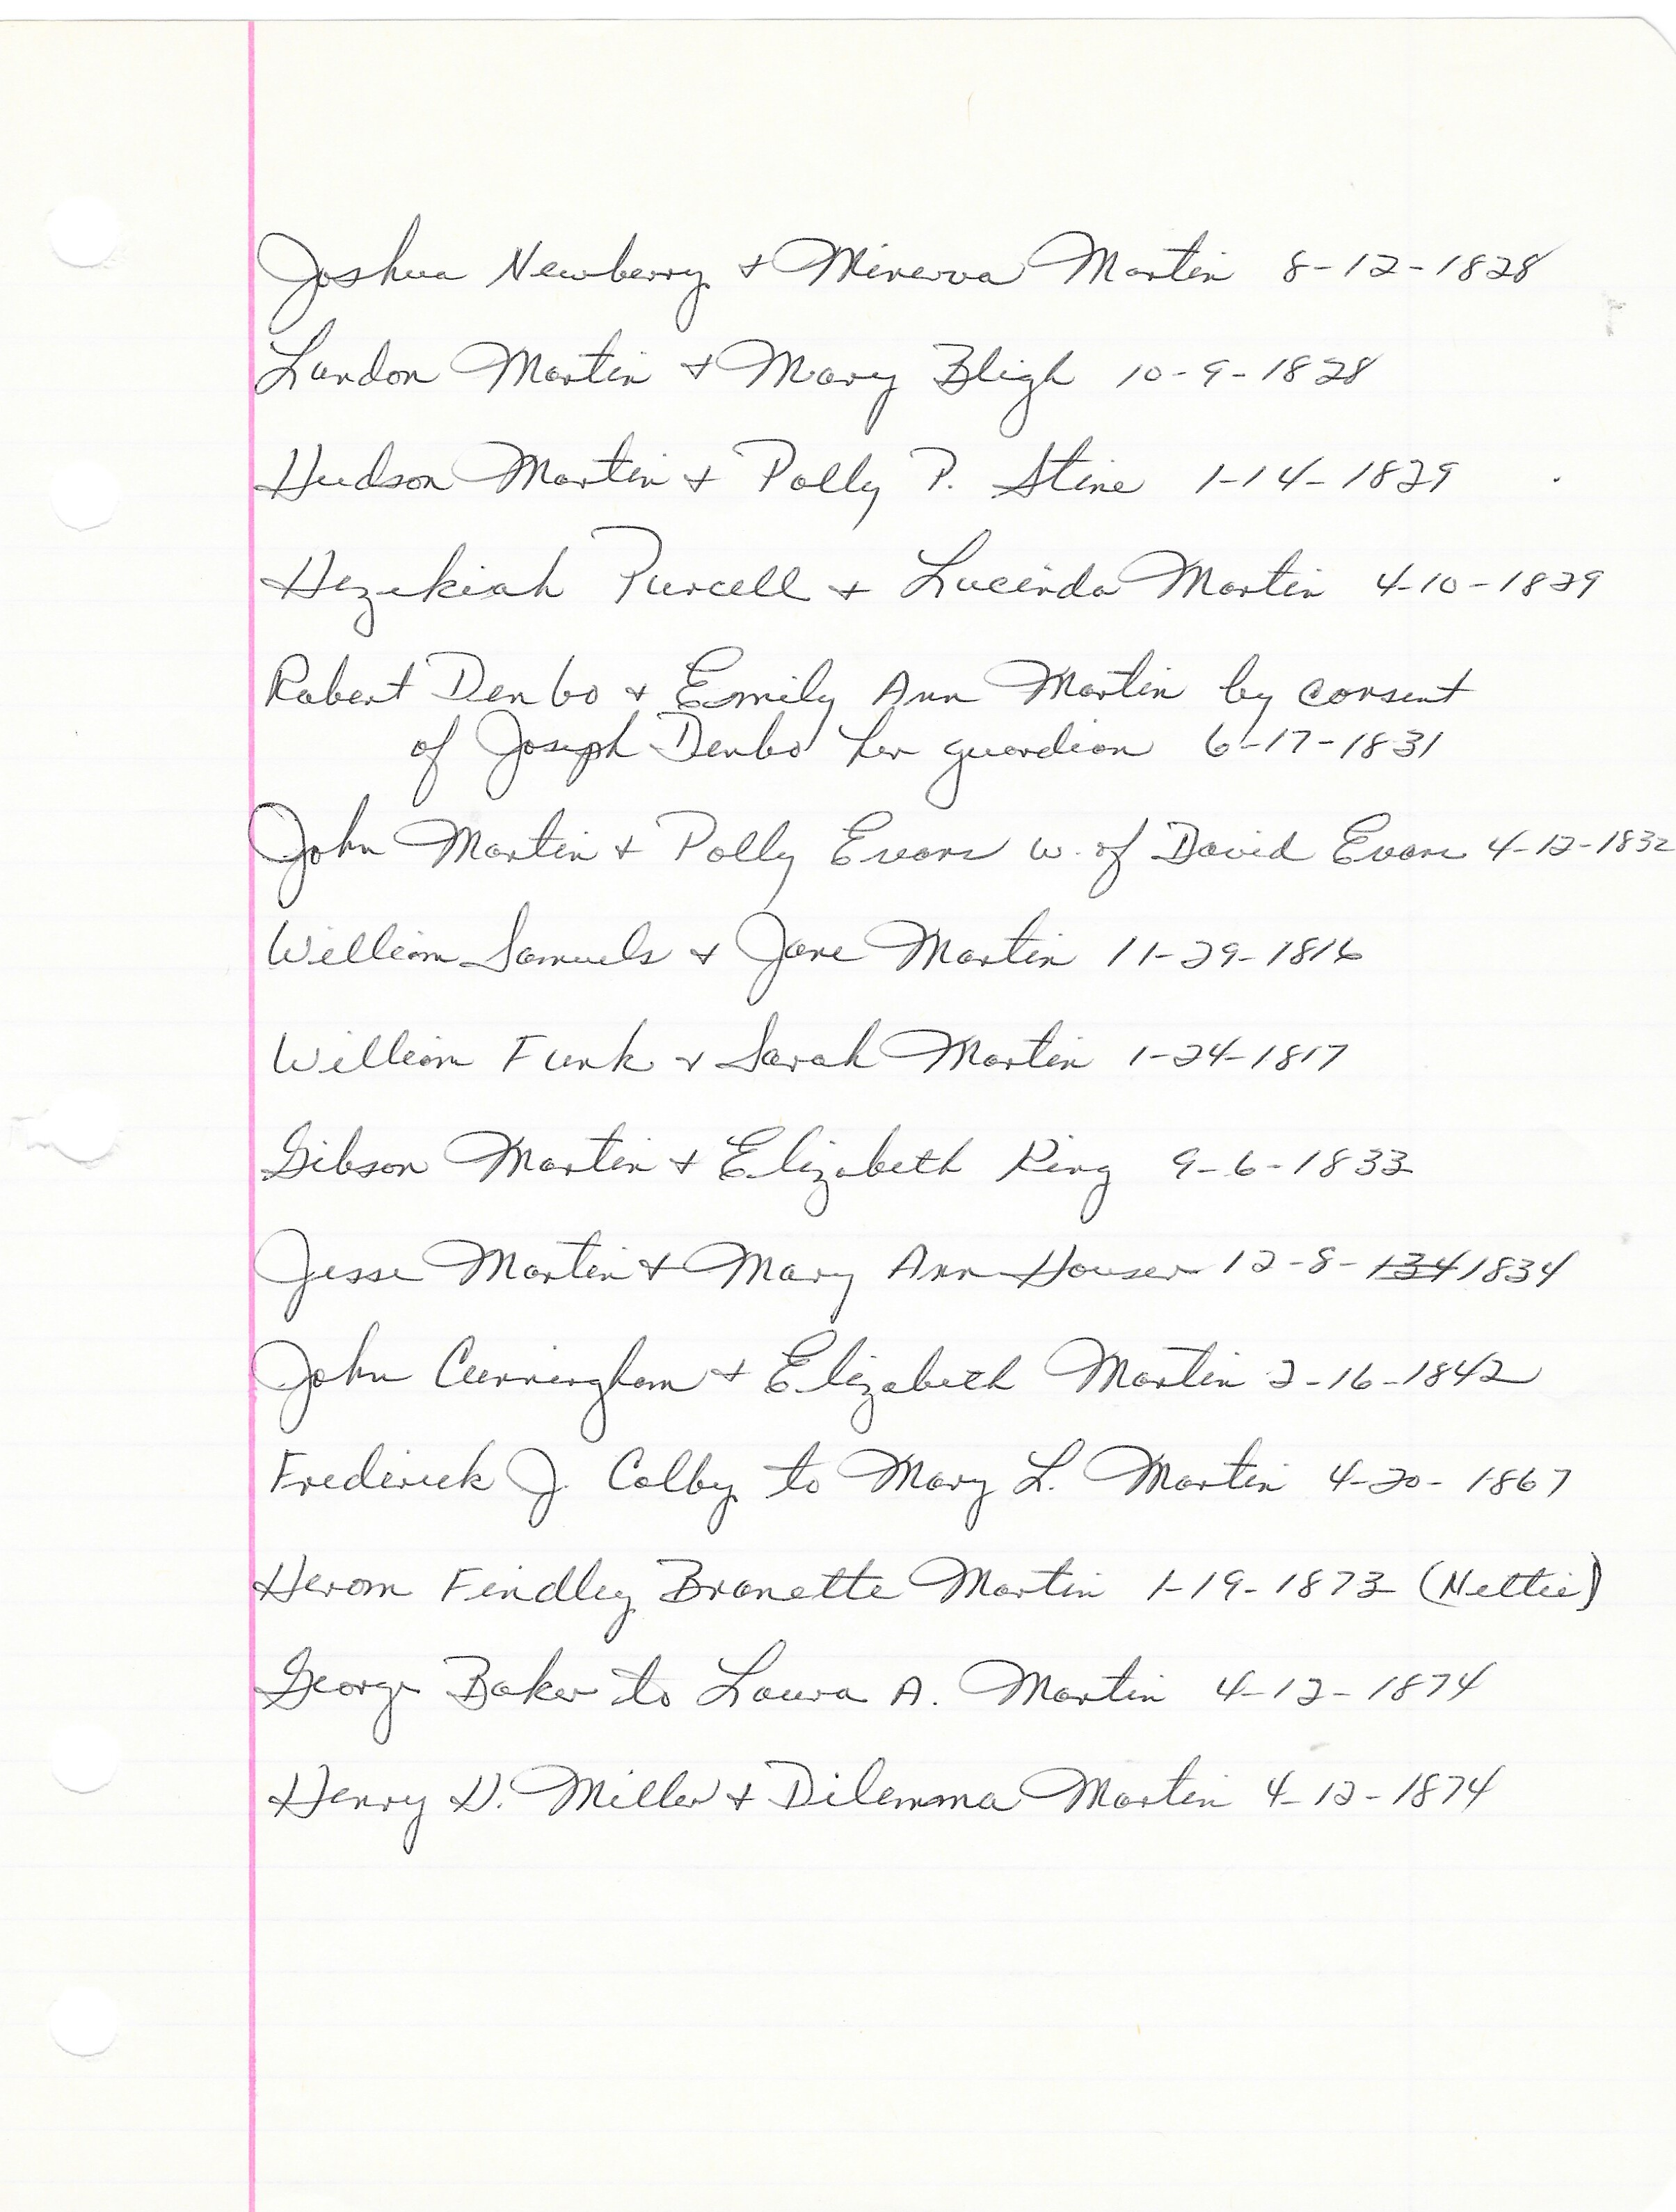 Joshua Newberry + Minerva Martin 8-12-1828
Landon Martin + Mary Bligh 10-9-1828
Hudson Martin + Polly P. Stine 1-14-1829
Hezekiah Purcell + Lucinda Martin 4-10-1829
Robert Denbo + Emily Ann Martin by consent
of Joseph Denbo her guardian 6-17-1831
John Martin + Polly Evans w. of David Evans 4-12-1832
William Samuels + Jane Martin 11-29-1816
William Funk + Sarah Martin 1-24-1817
Gibson Martin + Elizabeth King 9-6-1833
Jesse Martin + Mary Ann Houser 12-8-134 1834
John Cunningham + Elizabeth Martin 2-16-1842
Frederick J. Colby to Mary L. Martin 4-20-1867
Herom Findley Branette Martin 1-19-1873 (Nettie)
George Baker to Laura A. Martin 4-12-1874
Henry H. Miller + Dilemma Martin 4-12-1874